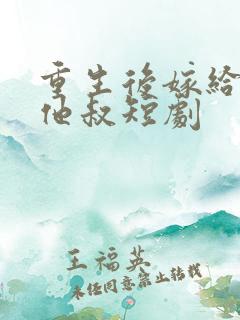 重生後嫁給
他叔短劇
王福英
未经同意禁止转载